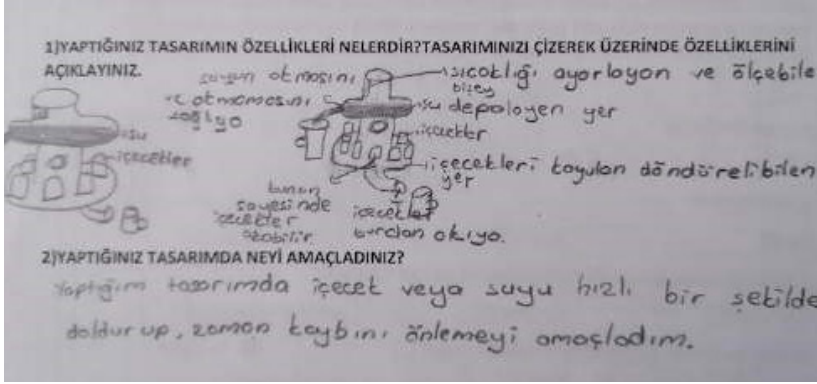 1)YAPTIĞINIZ TASARIMIN ÖZELLİKLERİ NELERDİR?TASARIMINIZI ÇİZEREK ÜZERİNDE ÖZELLİKLERİNİ
AÇIKLAYINIZ.
suyun akmasını
ve akmamasını
sağlıyo
ısıcaklığı ayarlayan ve ölçebile
bizey
su depolayen yer
su
içecekler
içecekler
içecekleri koyulan döndürelibilen
yer
bunun
sayesinde
içecekler
akabilir
içecekler
burdan akıyo.
2)YAPTIĞINIZ TASARIMDA NEYİ AMAÇLADINIZ?
Yaptığım tasarımda içecek veya suyu hızlı bir şekilde
doldurup, zaman kaybını önlemeyi amaçladım.